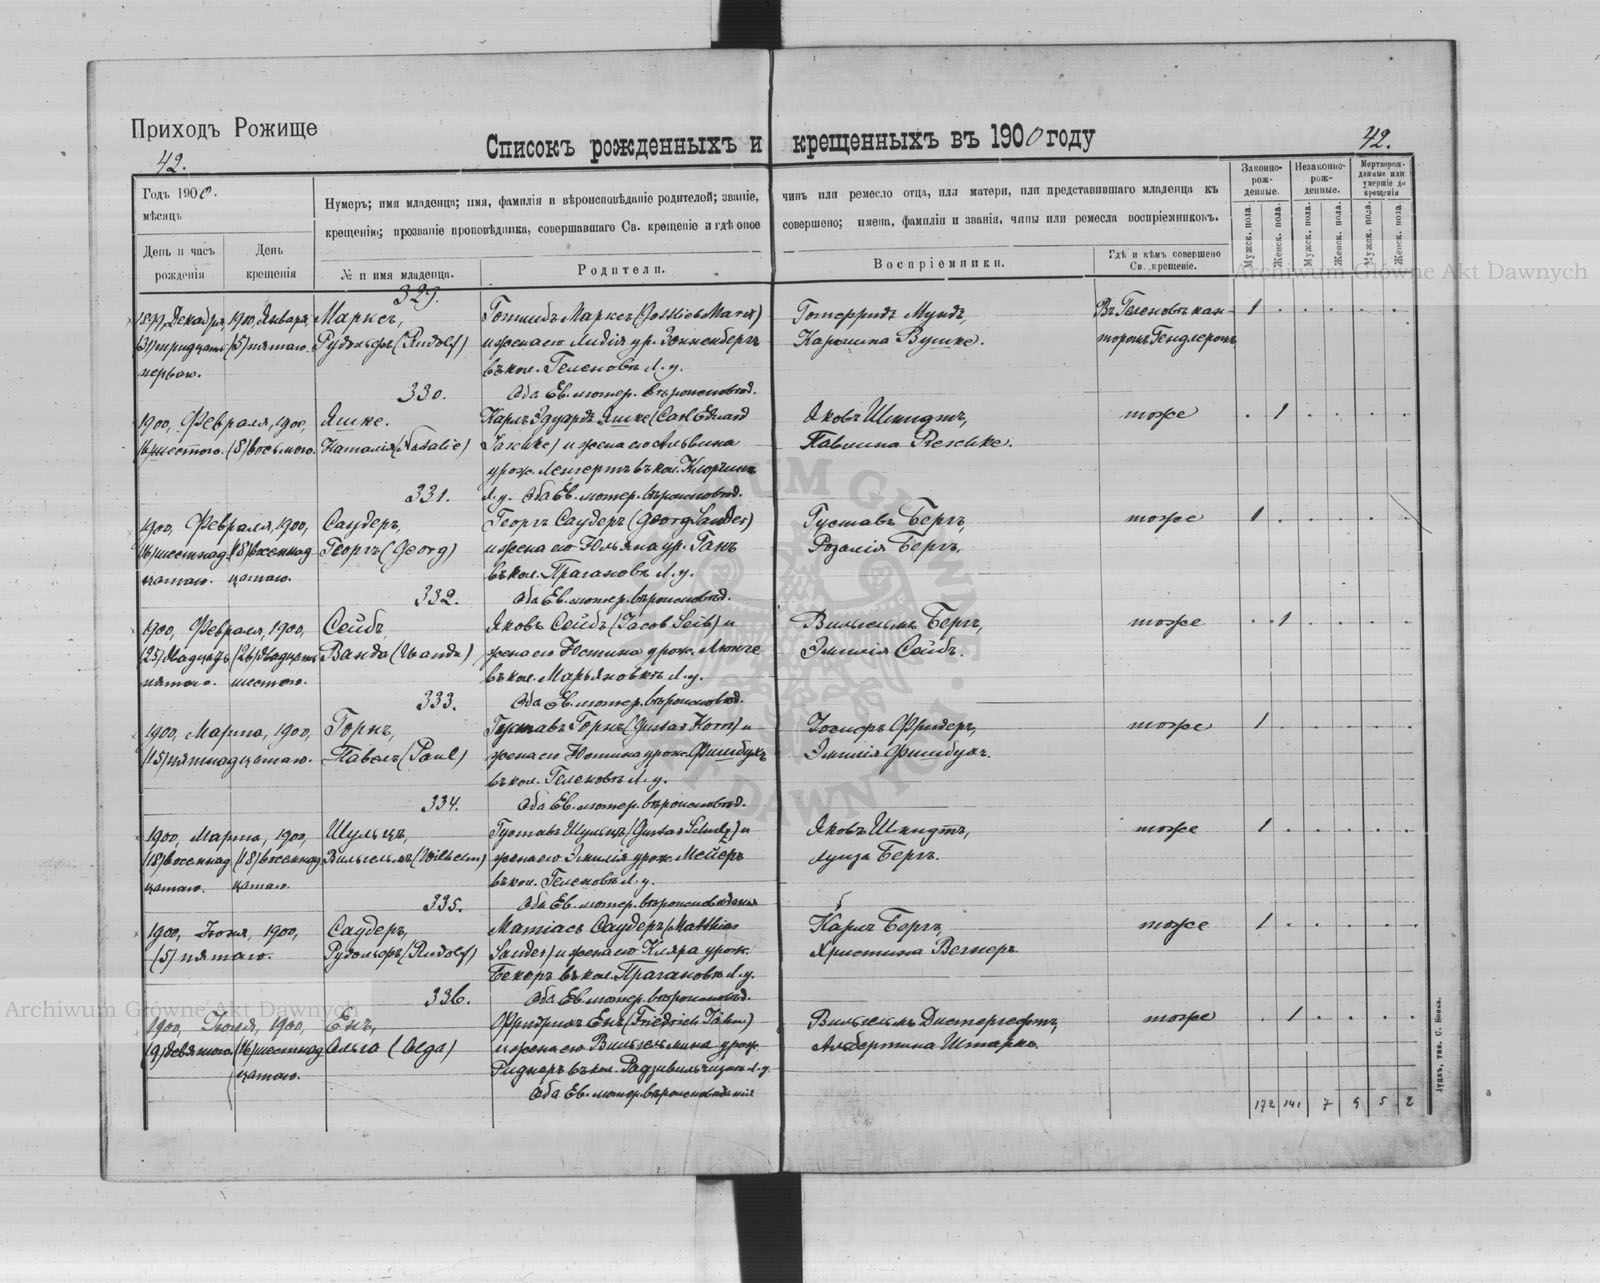 Приходъ Рожище
42.
Списокъ рожденныхъ и крещенныхъ въ 1900 году
42.
Годъ 1900.
мѣсяцъ
День и часъ рожденія
День крещенія
Нумеръ; имя младенца; имя, фамилія и вѣроисповѣданіе родителей; званіе, чинъ или ремесло отца, или матери, или представившаго младенца къ
крещенію; прозваніе проповѣдника, совершавшаго Св. крещеніе и гдѣ оное совершено; имена, фамиліи и званія, чины или ремесла воспріемниковъ.
№ и имя младенца.
Родители.
Воспріемники.
Гдѣ и кѣмъ совершено Св. крещеніе.
Законно-рож-денные.
Незаконно-рож-денные.
Мертворож-денные или умершіе до крещенія
Мужск. пола.
Женск. пола.
Мужск. пола.
Женск. пола.
Мужск. пола.
Женск. пола.
329.
1899, Декабря, 1900, Января, Марксъ, Готлибъ Марксъ (Gottlieb Marx) Готфридъ Мундъ, Въ Геленовкѣ кан- 1
(31) тридцать (5) пятаго. Рудольфъ (Rudolf) и жена его Лидія ур. Зонненбергъ Каролина
перваго. въ кол. Геленовкѣ Л. у.
330. Оба Ев. лютер. вѣроисповѣд.
1900, Февраля, 1900, Яшке. Карлъ Эдуардъ Яшке (Carl Eduard Яковъ Шмидтъ, тоже 1
(6) шестого. (8) восьмого. Наталія (Natalie) Jaschke) и жена его Альвина Павлина
урож. въ кол.
331. Л. у. Оба Ев. лютер. вѣроисповѣд.
1900, Февраля, 1900, Саудеръ, Георгъ Саудеръ (Georg Sauder) Густавъ Бергъ, тоже 1
(16) шестнад (18) восемнад Георгъ (Georg) и жена его Юльяна ур. Ганъ Розалія Бергъ.
цатаго. цатаго. въ кол. Л. у.
332. Оба Ев. лютер. вѣроисповѣд.
1900, Февраля, 1900, Сейбъ, Яковъ Сейбъ (Jacob Seib) и Вильгельмъ Бергъ, тоже 1
(25) двадцать (26) двадцать Ванда (Wanda) жена его Юстина урож. Эмилія Сейбъ.
пятаго. шестого. въ кол. Марьяновкѣ Л. у.
333. Оба Ев. лютер. вѣроисповѣд.
1900, Марта, 1900, Горнъ, Густавъ Горнъ (Gustav Horn) и Іосифъ Фридеръ, тоже 1
(15) пятнадцатаго. Павелъ (Paul) жена его Юстина урож. Фишбухъ Эмилія Фишбухъ.
въ кол. Геленовкѣ Л. у.
334. Оба Ев. лютер. вѣроисповѣд.
1900, Марта, 1900, Шульцъ, Густавъ Шульцъ (Gustav Schulz) и Яковъ Шмидтъ, тоже 1
(18) восемнад (18) восемнад Вильгельмъ (Wilhelm) жена его Эмилія урож. Мейеръ Луиза Бергъ.
цатаго. цатаго. въ кол. Геленовкѣ Л. у.
335. Оба Ев. лютер. вѣроисповѣданія
1900, 1900, Саудеръ, Матіасъ Саудеръ (Matthias Карлъ Бергъ, тоже 1
(5) пятаго. Рудольфъ (Rudolf) Sauder) и жена его Клара урож. Христина Вегнеръ.
Бекеръ въ кол. Л. у.
336. Оба Ев. лютер. вѣроисповѣд.
1900, 1900, Енъ, Фридрихъ Енъ (Friedrich Jähn) Вильгельмъ тоже 1
(9) девятого (16) шестнад Ольга (Olga) и жена его Вильгельмина урож. Альбертина Штарке.
цатаго. въ кол. Л. у.
Оба Ев. лютер. вѣроисповѣданія
172 141 7 9 5 2
Луцкъ, тип. С. Бонка.
Archiwum Główne Akt Dawnych
Archiwum Główne Akt Dawnych